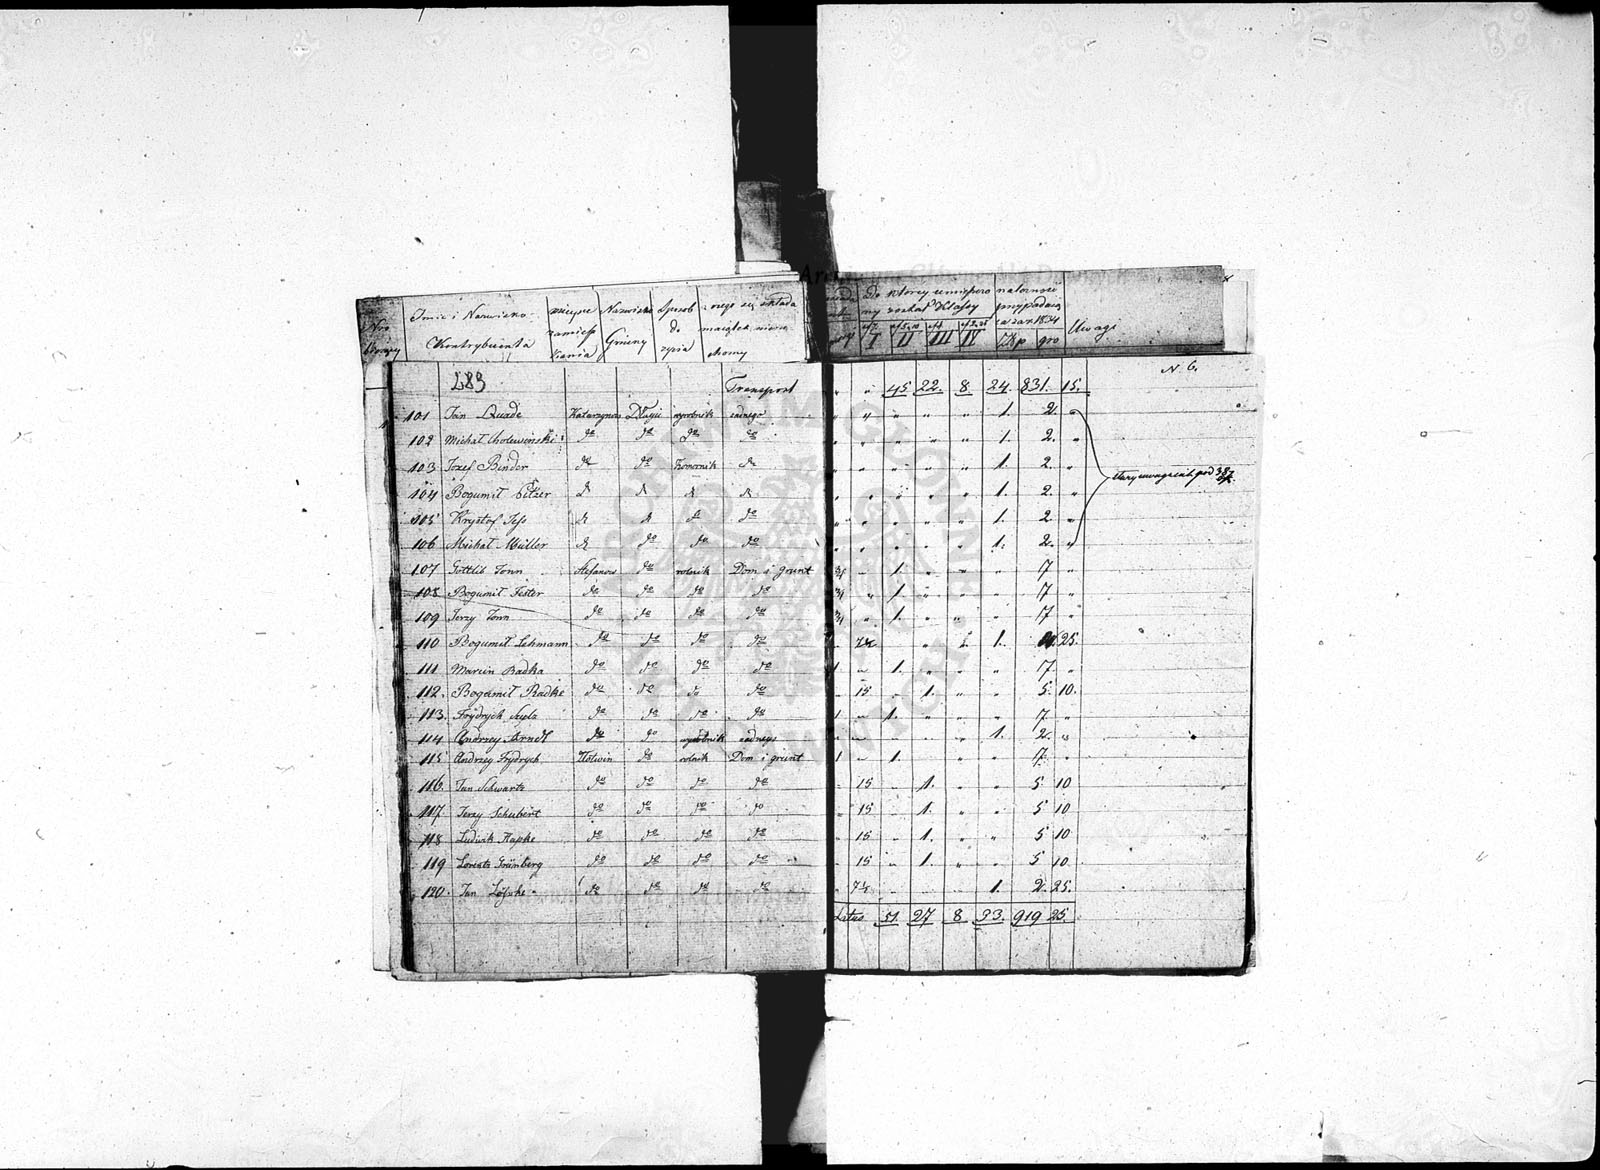 Nro
Imie i Nazwisko
Kontrybuenta
mieysce
zamiesz
kania
Nazwisko
Gminy
Sposob
do
zycia
czego się składa
maiątek nieru
chomy
Do ktorey umieszczo
ny został Klassy
I II III IV
należność
przypadaią
za rok 1834
Złp gro
Uwagi
289 Transport " " 45 22. 8. 24. 831. 15. N 6.
101 Jan Quade Katarzynow Długie wyrobnik żadnego " " " " " 1. 2. "
102 Michał Cholewinski do do do do " " " " " 1. 2. "
103 Jozef Binder do do Komornik do " " " " " 1. 2. "
104 Bogumił do do do do " " " " " 1. 2. "
105 Krystof Jess do do do do " " " " " 1. 2. "
106 Michał Müller do do do do " " " " " 1. 2. "
pod
107 Gottlib Tonn Stefanow do rolnik Dom i grunt " 1. " " " 17 "
108 Bogumił Fester do do do do " 1. " " " 17 "
109 Jerzy Tonn do do do do " 1. " " " 17 "
110 Bogumił Lehmann do do do do 7½ " " 1. 25.
111 Marcin Radka do do do do 1 " 1. " " " 17. "
112. Bogumił Radke do do do do " 15 " 1. " " 5. 10.
113. Frydrych do do do do 1 " 1. " " " 17. "
114 Andrzey Arndt do do wyrobnik żadnego " " " " " 1. 2. "
115 Andrzey Frydrych do rolnik Dom i grunt 1 " 1. " " " 17. "
116. Jan Schwartz do do do do " 15 " 1. " " 5. 10
117. Jerzy Schubert do do do do " 15 " 1. " " 5 10
118 Ludwik Hapke do do do do " 15 " 1. " " 5 10
119 Grünberg do do do do " 15 " 1. " " 5 10
120. Jan do do do do " 7½ " " " 1. 2. 25.
Latus 51. 27 8 33. 919 25.